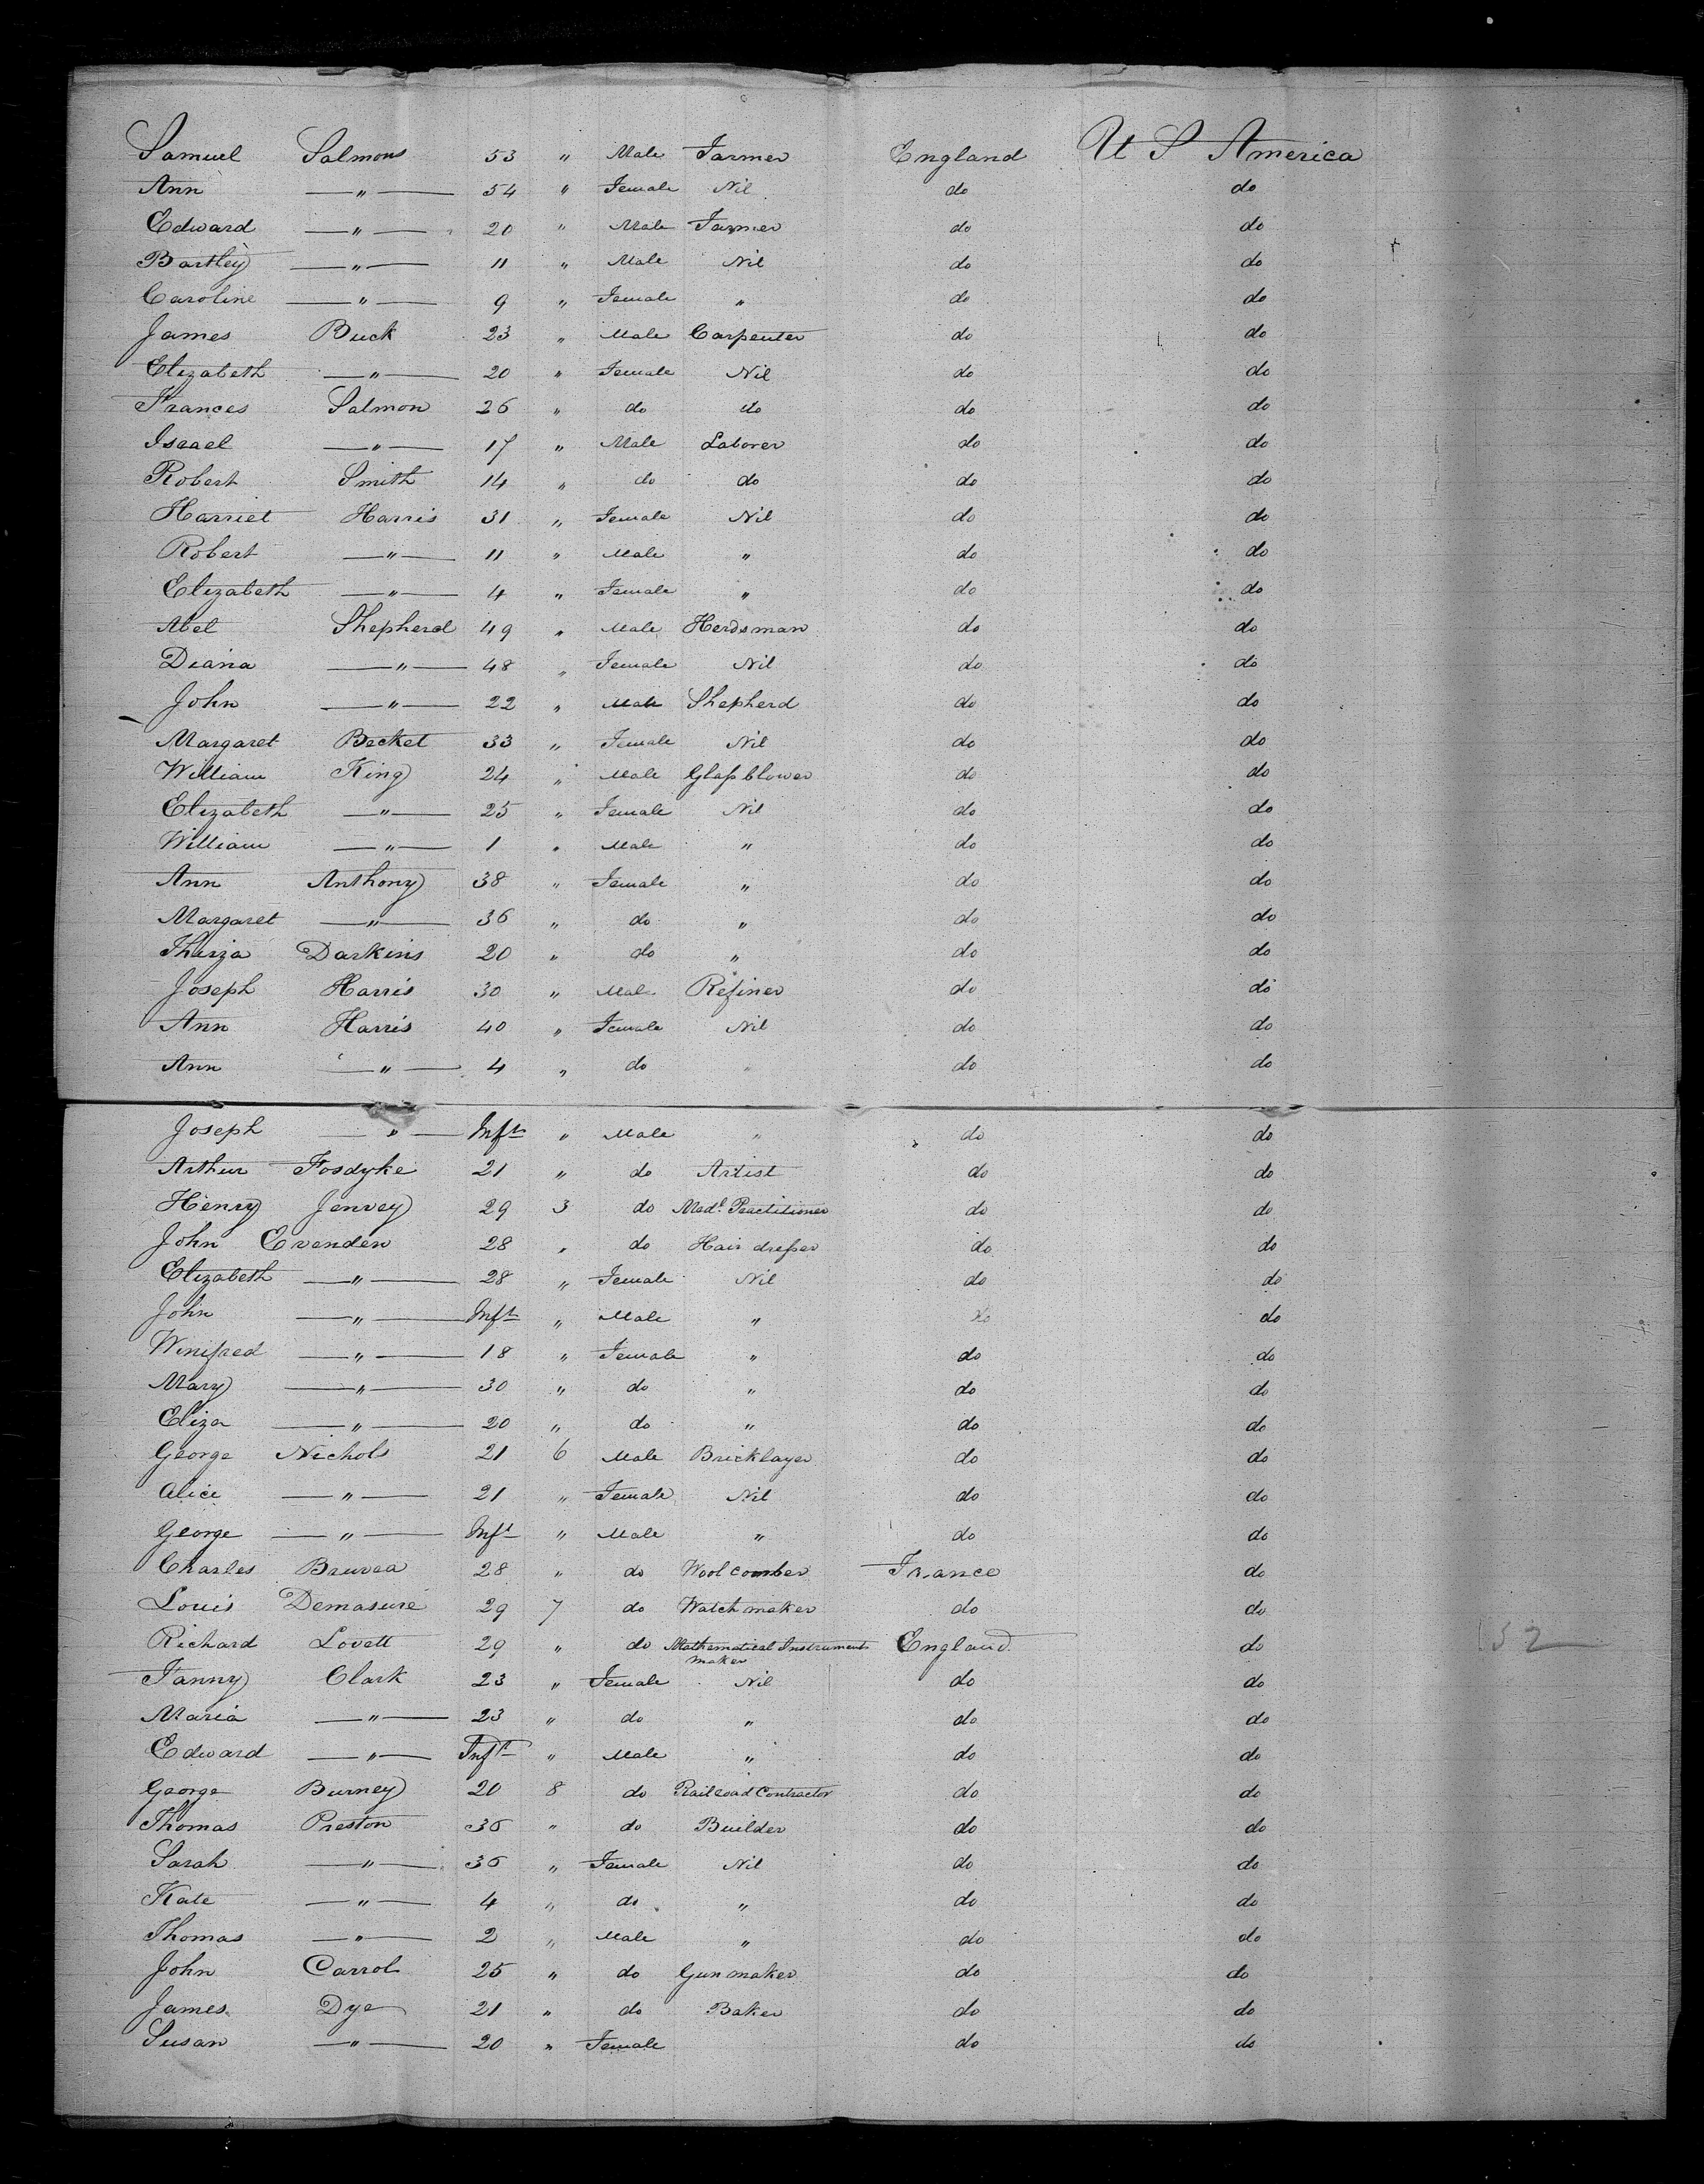 Samuel Salmons 53 " Male Farmer England U S America
Ann — " — 54 " Female Nil do do
Edward — " — 20 " Male Farmer do do
Bartley — " — 11 " Male Nil do do
Caroline — " — 9 " Female " do do
James Buck 23 " Male Carpenter do do
Elizabeth — " — 20 " Female Nil do do
Frances Salmon 26 " do do do do
Israel — " — 17 " Male Laborer do do
Robert Smith 14 " do do do do
Harriet Harris 31 " Female Nil do do
Robert — " — 11 " Male " do do
Elizabeth — " — 4 " Female " do do
Abel Shepherd 49 " Male Herdsman do do
Diana — " — 48 " Female Nil do do
John — " — 22 " Male Shepherd do do
Margaret Becket 33 " Female Nil do do
William King 24 " Male Glassblower do do
Elizabeth — " — 25 " Female Nil do do
William — " — 1 " Male " do do
Ann Anthony 38 " Female " do do
Margaret — " — 36 " do " do do
Thirza Darkins 20 " do " do do
Joseph Harris 30 " Male Refiner do do
Ann Harris 40 " Female Nil do do
Ann — " — 4 " do " do do
Joseph — " — Inft " Male " do do
Arthur Fosdyke 21 " do Artist do do
Henry Jenvey 29 3 do Medl. Practitioner do do
John Evenden 28 " do Hair dresser do do
Elizabeth — " — 28 " Female Nil do do
John — " — Inft " Male " do do
Winifred — " — 18 " Female " do do
Mary — " — 30 " do " do do
Eliza — " — 20 " do " do do
George Nichols 21 6 Male Bricklayer do do
Alice — " — 21 " Female Nil do do
George — " — Inft " Male " do do
Charles Bruvea 28 " do Wool comber France do
Louis Demasure 29 7 do Watch maker do do
Richard Lovett 29 " do Mathematical Instruments maker England do 152
Fanny Clark 23 " Female Nil do do
Maria — " — 23 " do " do do
Edward — " — Inft " Male " do do
George Burney 20 8 do Railroad Contractor do do
Thomas Preston 36 " do Builder do do
Sarah — " — 36 " Female Nil do do
Kate — " — 4 " do " do do
Thomas — " — 2 " Male " do do
John Carrol 25 " do Gun maker do do
James Dye 21 " do Baker do do
Susan — " — 20 " Female do do